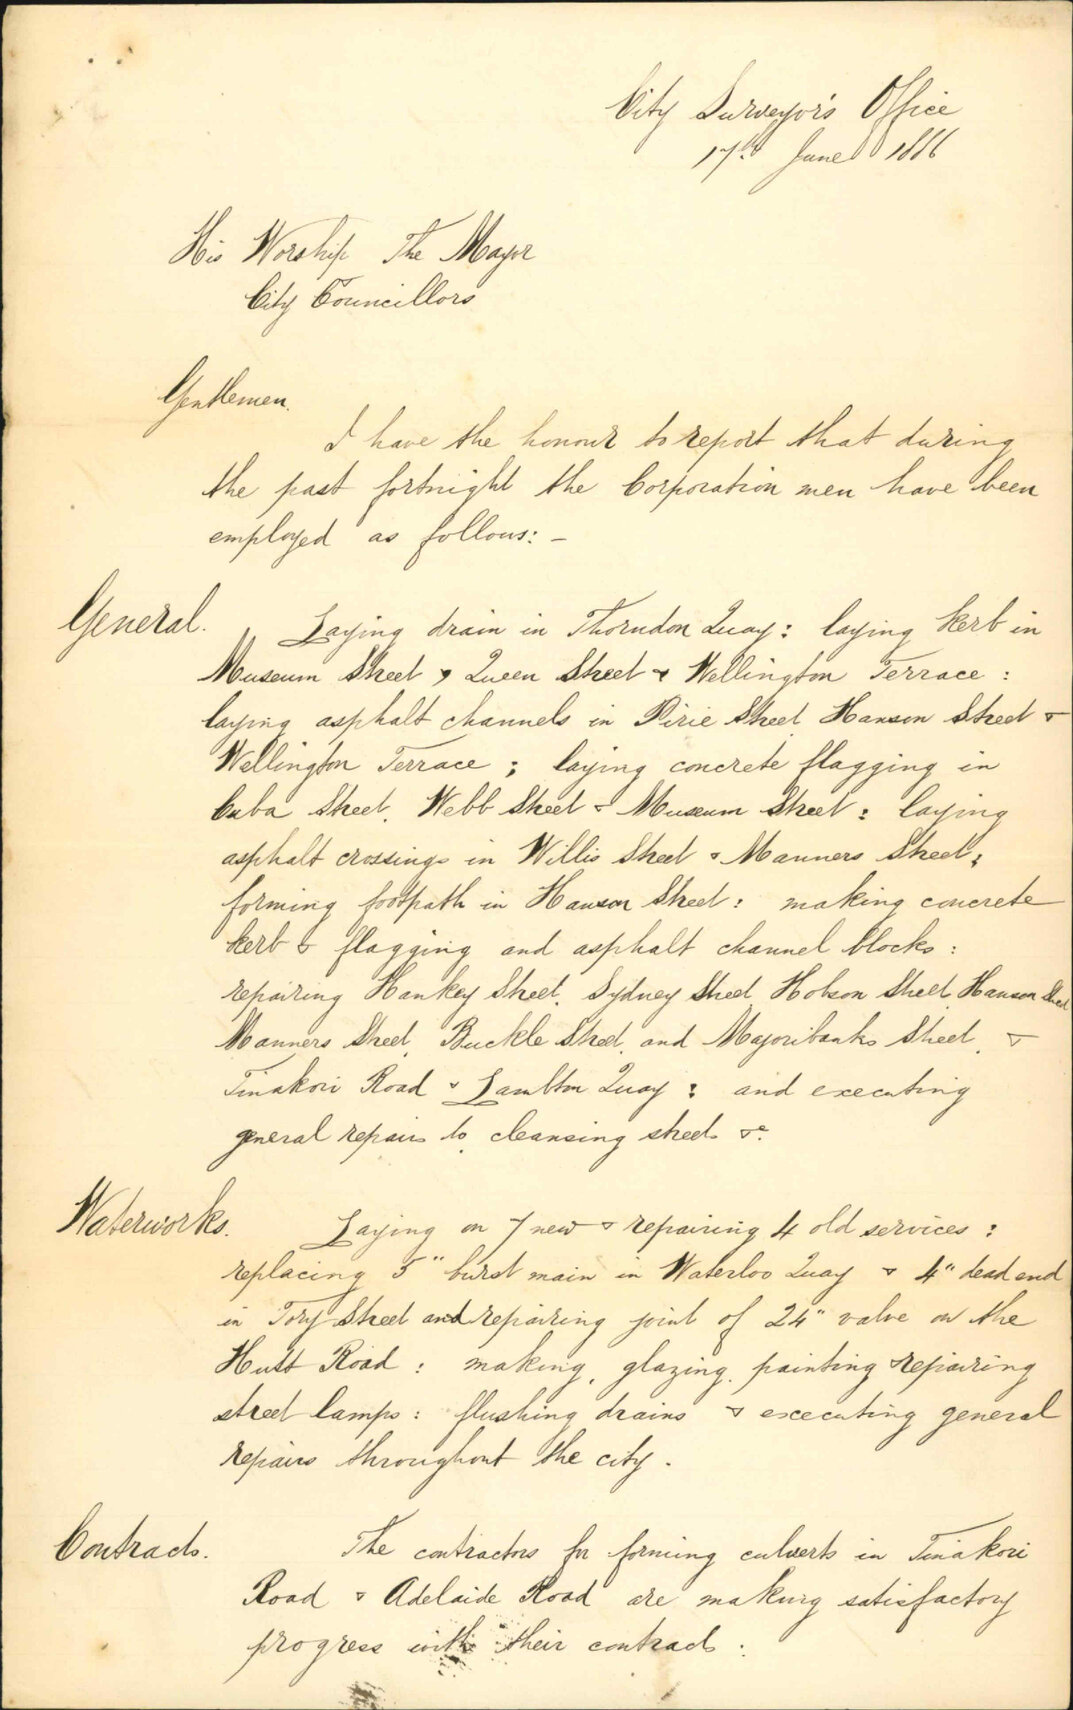 City Surveyor's Office
17th June 1886
His Worship The Mayor
City Councillors
Gentlemen.
I have the honour to report that during
the past fortnight the Corporation men have been
employed as follows: —
General. Laying drain in Thorndon Quay: laying kerb in
Museum Street & Queen Street & Wellington Terrace:
laying asphalt channels in Pirie Street Hanson Street &
Wellington Terrace; laying concrete flagging in
Cuba Street, Webb Street & Museum Street: laying
asphalt crossings in Willis Street & Manners Street;
forming footpath in Hanson Street: making concrete
kerb & flagging and asphalt channel blocks:
repairing Hankey Street, Sydney Street Hobson Street Hanson Street
Manners Street, Buckle Street, and Majoribanks Street, &
Tinakori Road & Lambton Quay: and executing
general repairs to, cleansing streets &c.
Waterworks. Laying on 7 new & repairing 4 old services:
replacing 5" burst main in Waterloo Quay & 4" dead end
in Tory Street and repairing joint of 24" valve on the
Hutt Road: making, glazing, painting & repairing
street lamps: flushing drains & executing general
repairs throughout the city.
Contracts. The contractors for forming culverts in Tinakori
Road & Adelaide Road are making satisfactory
progress with their contracts: